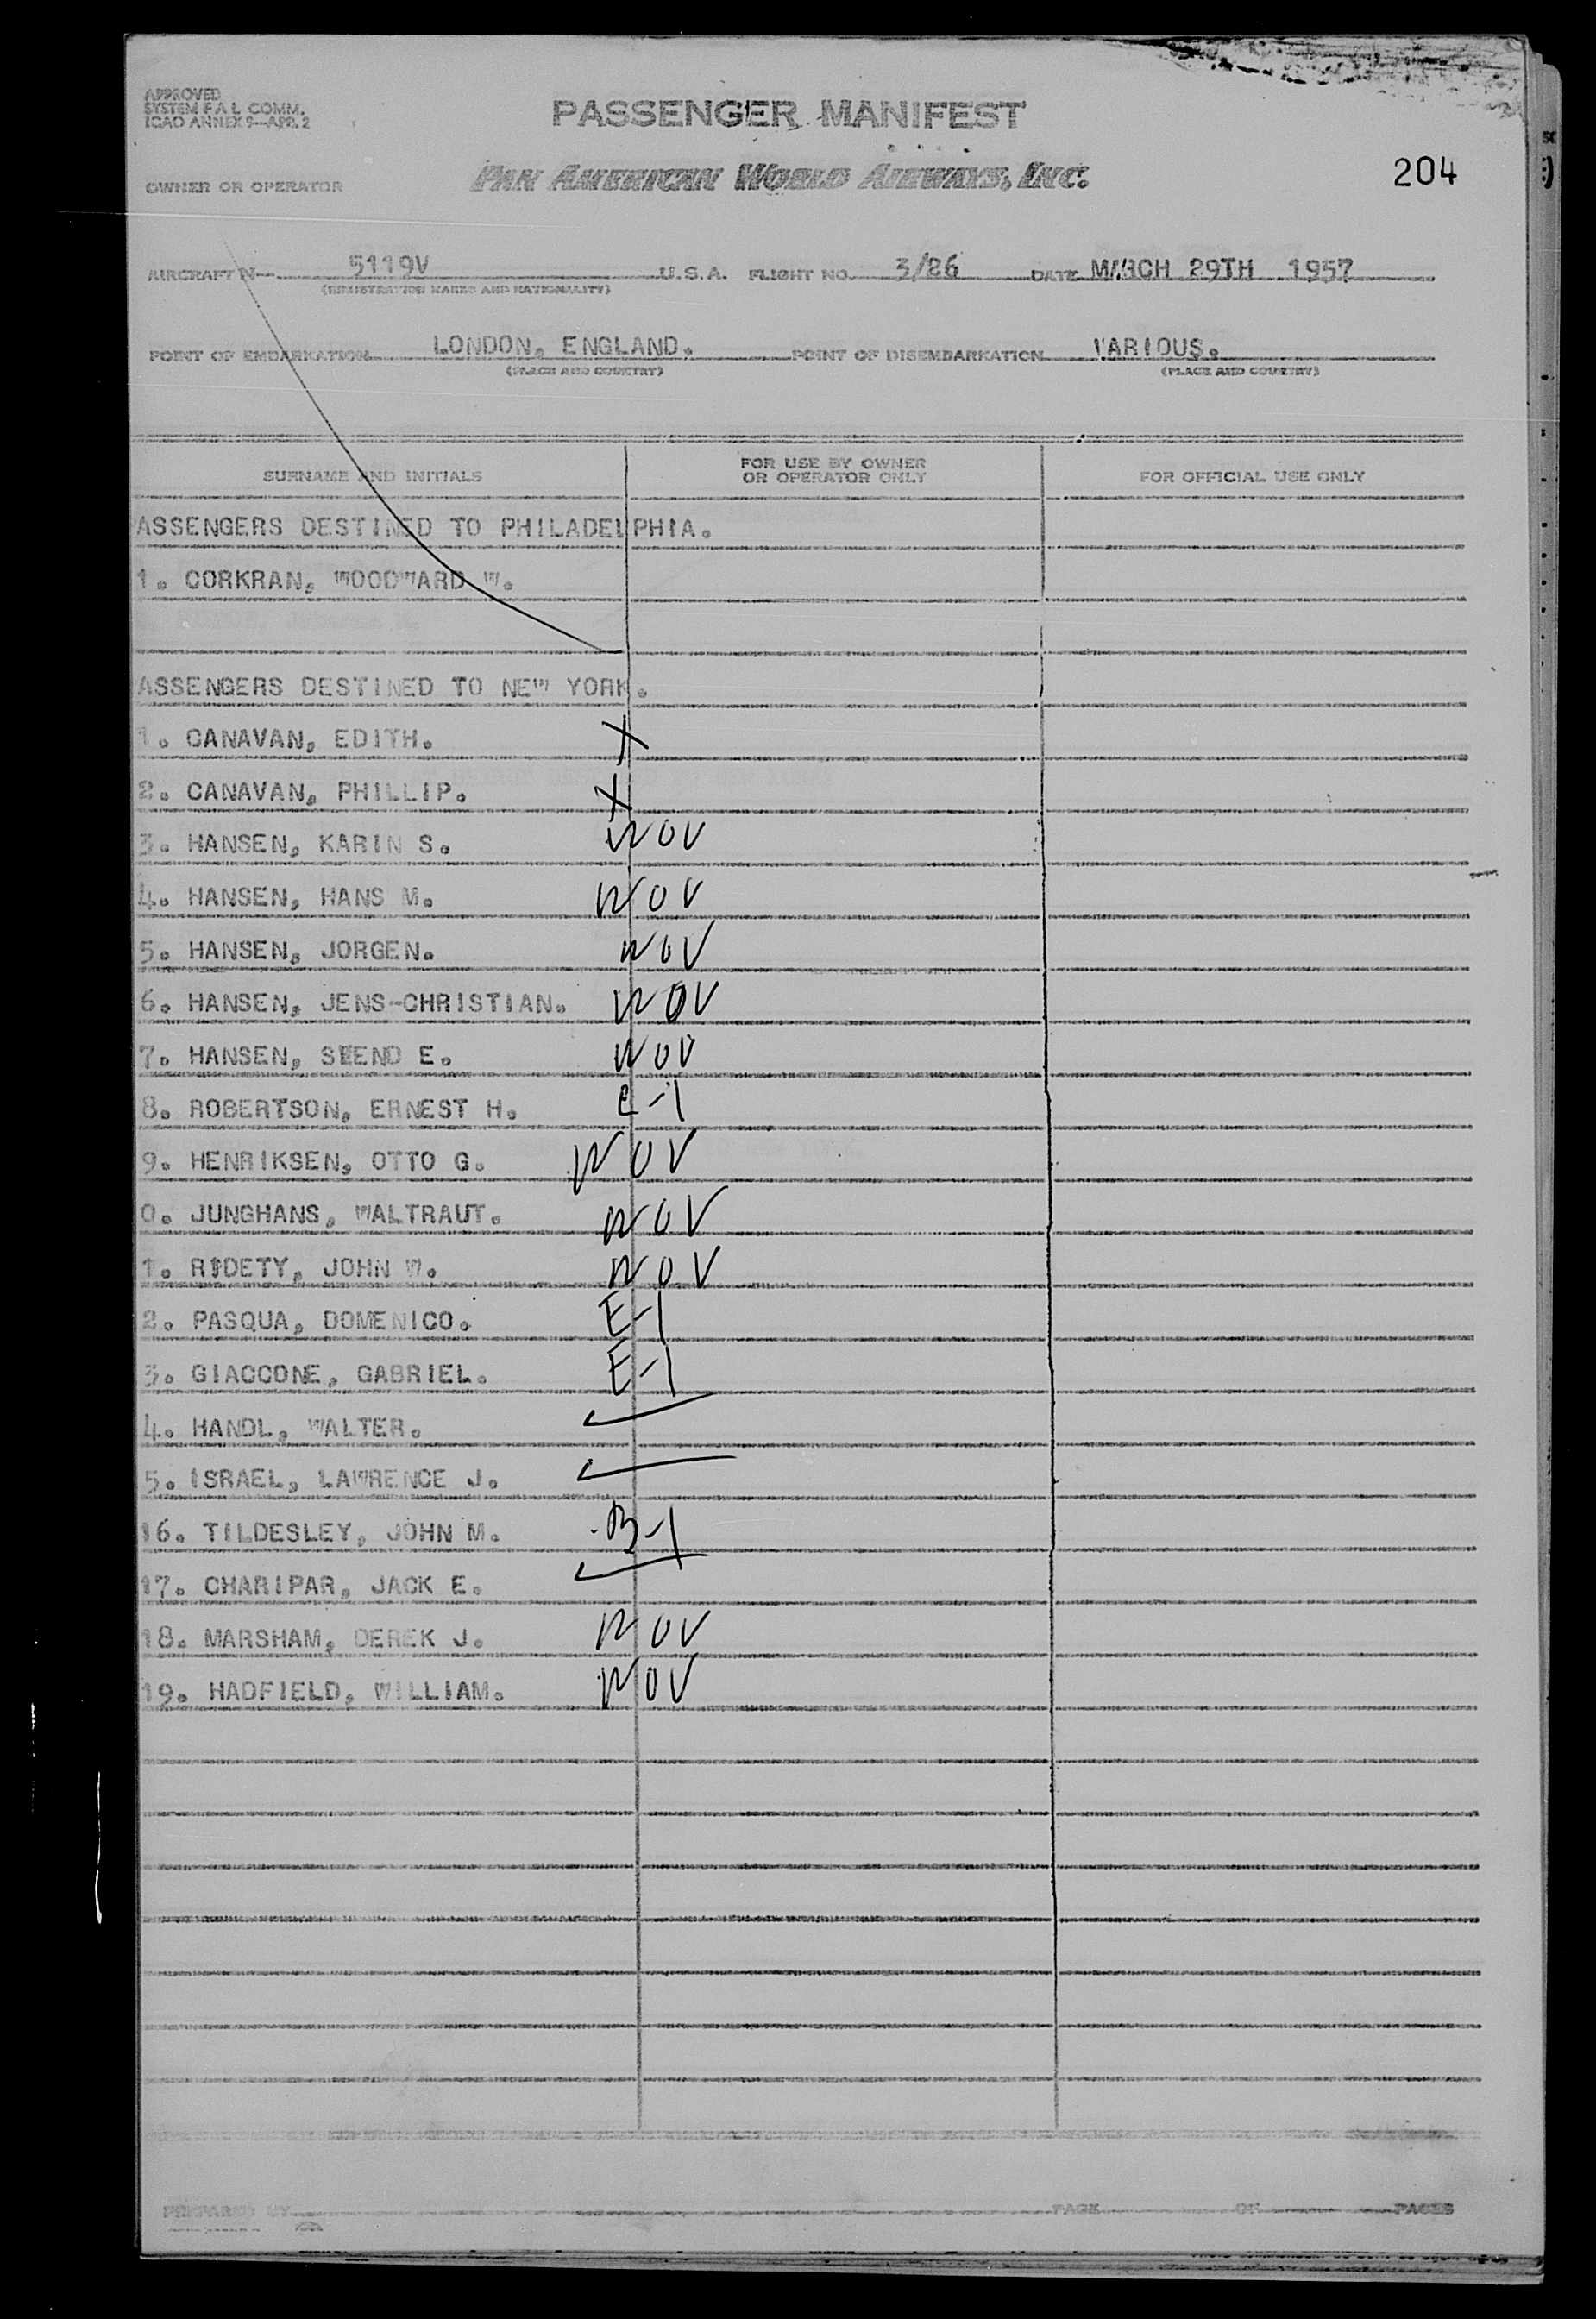 APPROVED
SYSTEM F A L COMM.
ICAO ANNEX 9—APP. 2
PASSENGER MANIFEST
OWNER OR OPERATOR PAN AMERICAN WORLD AIRWAYS, INC. 204
AIRCRAFT N— 5119V U.S.A. FLIGHT NO. 3/26 DATE MARCH 29TH 1957
(REGISTRATION MARKS AND NATIONALITY)
POINT OF EMBARKATION LONDON, ENGLAND. POINT OF DISEMBARKATION VARIOUS.
(PLACE AND COUNTRY) (PLACE AND COUNTRY)
SURNAME AND INITIALS FOR USE BY OWNER OR OPERATOR ONLY FOR OFFICIAL USE ONLY
ASSENGERS DESTINED TO PHILADELPHIA.
1. CORKRAN, WOODWARD W.
ASSENGERS DESTINED TO NEW YORK.
1. CANAVAN, EDITH. X
2. CANAVAN, PHILLIP. X
3. HANSEN, KARIN S. NOV
4. HANSEN, HANS M. NOV
5. HANSEN, JORGEN. NOV
6. HANSEN, JENS-CHRISTIAN. NOV
7. HANSEN, SEEND E. NOV
8. ROBERTSON, ERNEST H. E-1
9. HENRIKSEN, OTTO G. NOV
0. JUNGHANS, WALTRAUT. NOV
1. RIDETY, JOHN W. NOV
2. PASQUA, DOMENICO. E-1
3. GIACCONE, GABRIEL. E-1
4. HANDL, WALTER.
5. ISRAEL, LAWRENCE J.
16. TILDESLEY, JOHN M. B-1
17. CHARIPAR, JACK E.
18. MARSHAM, DEREK J. NOV
19. HADFIELD, WILLIAM. NOV
PREPARED BY PAGE OF PAGES